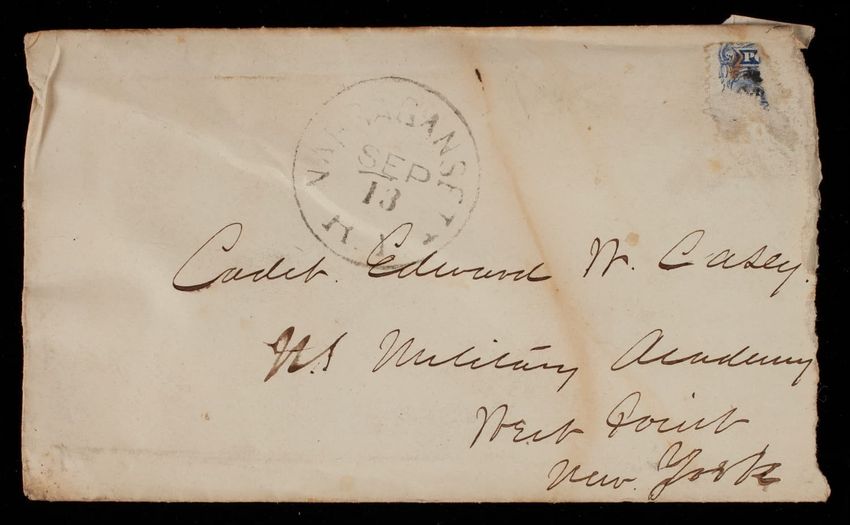 NARRAGANSETT
R. I.
SEP
13
Cadet. Edward W. Casey.
US Military Academy
West Point
New York